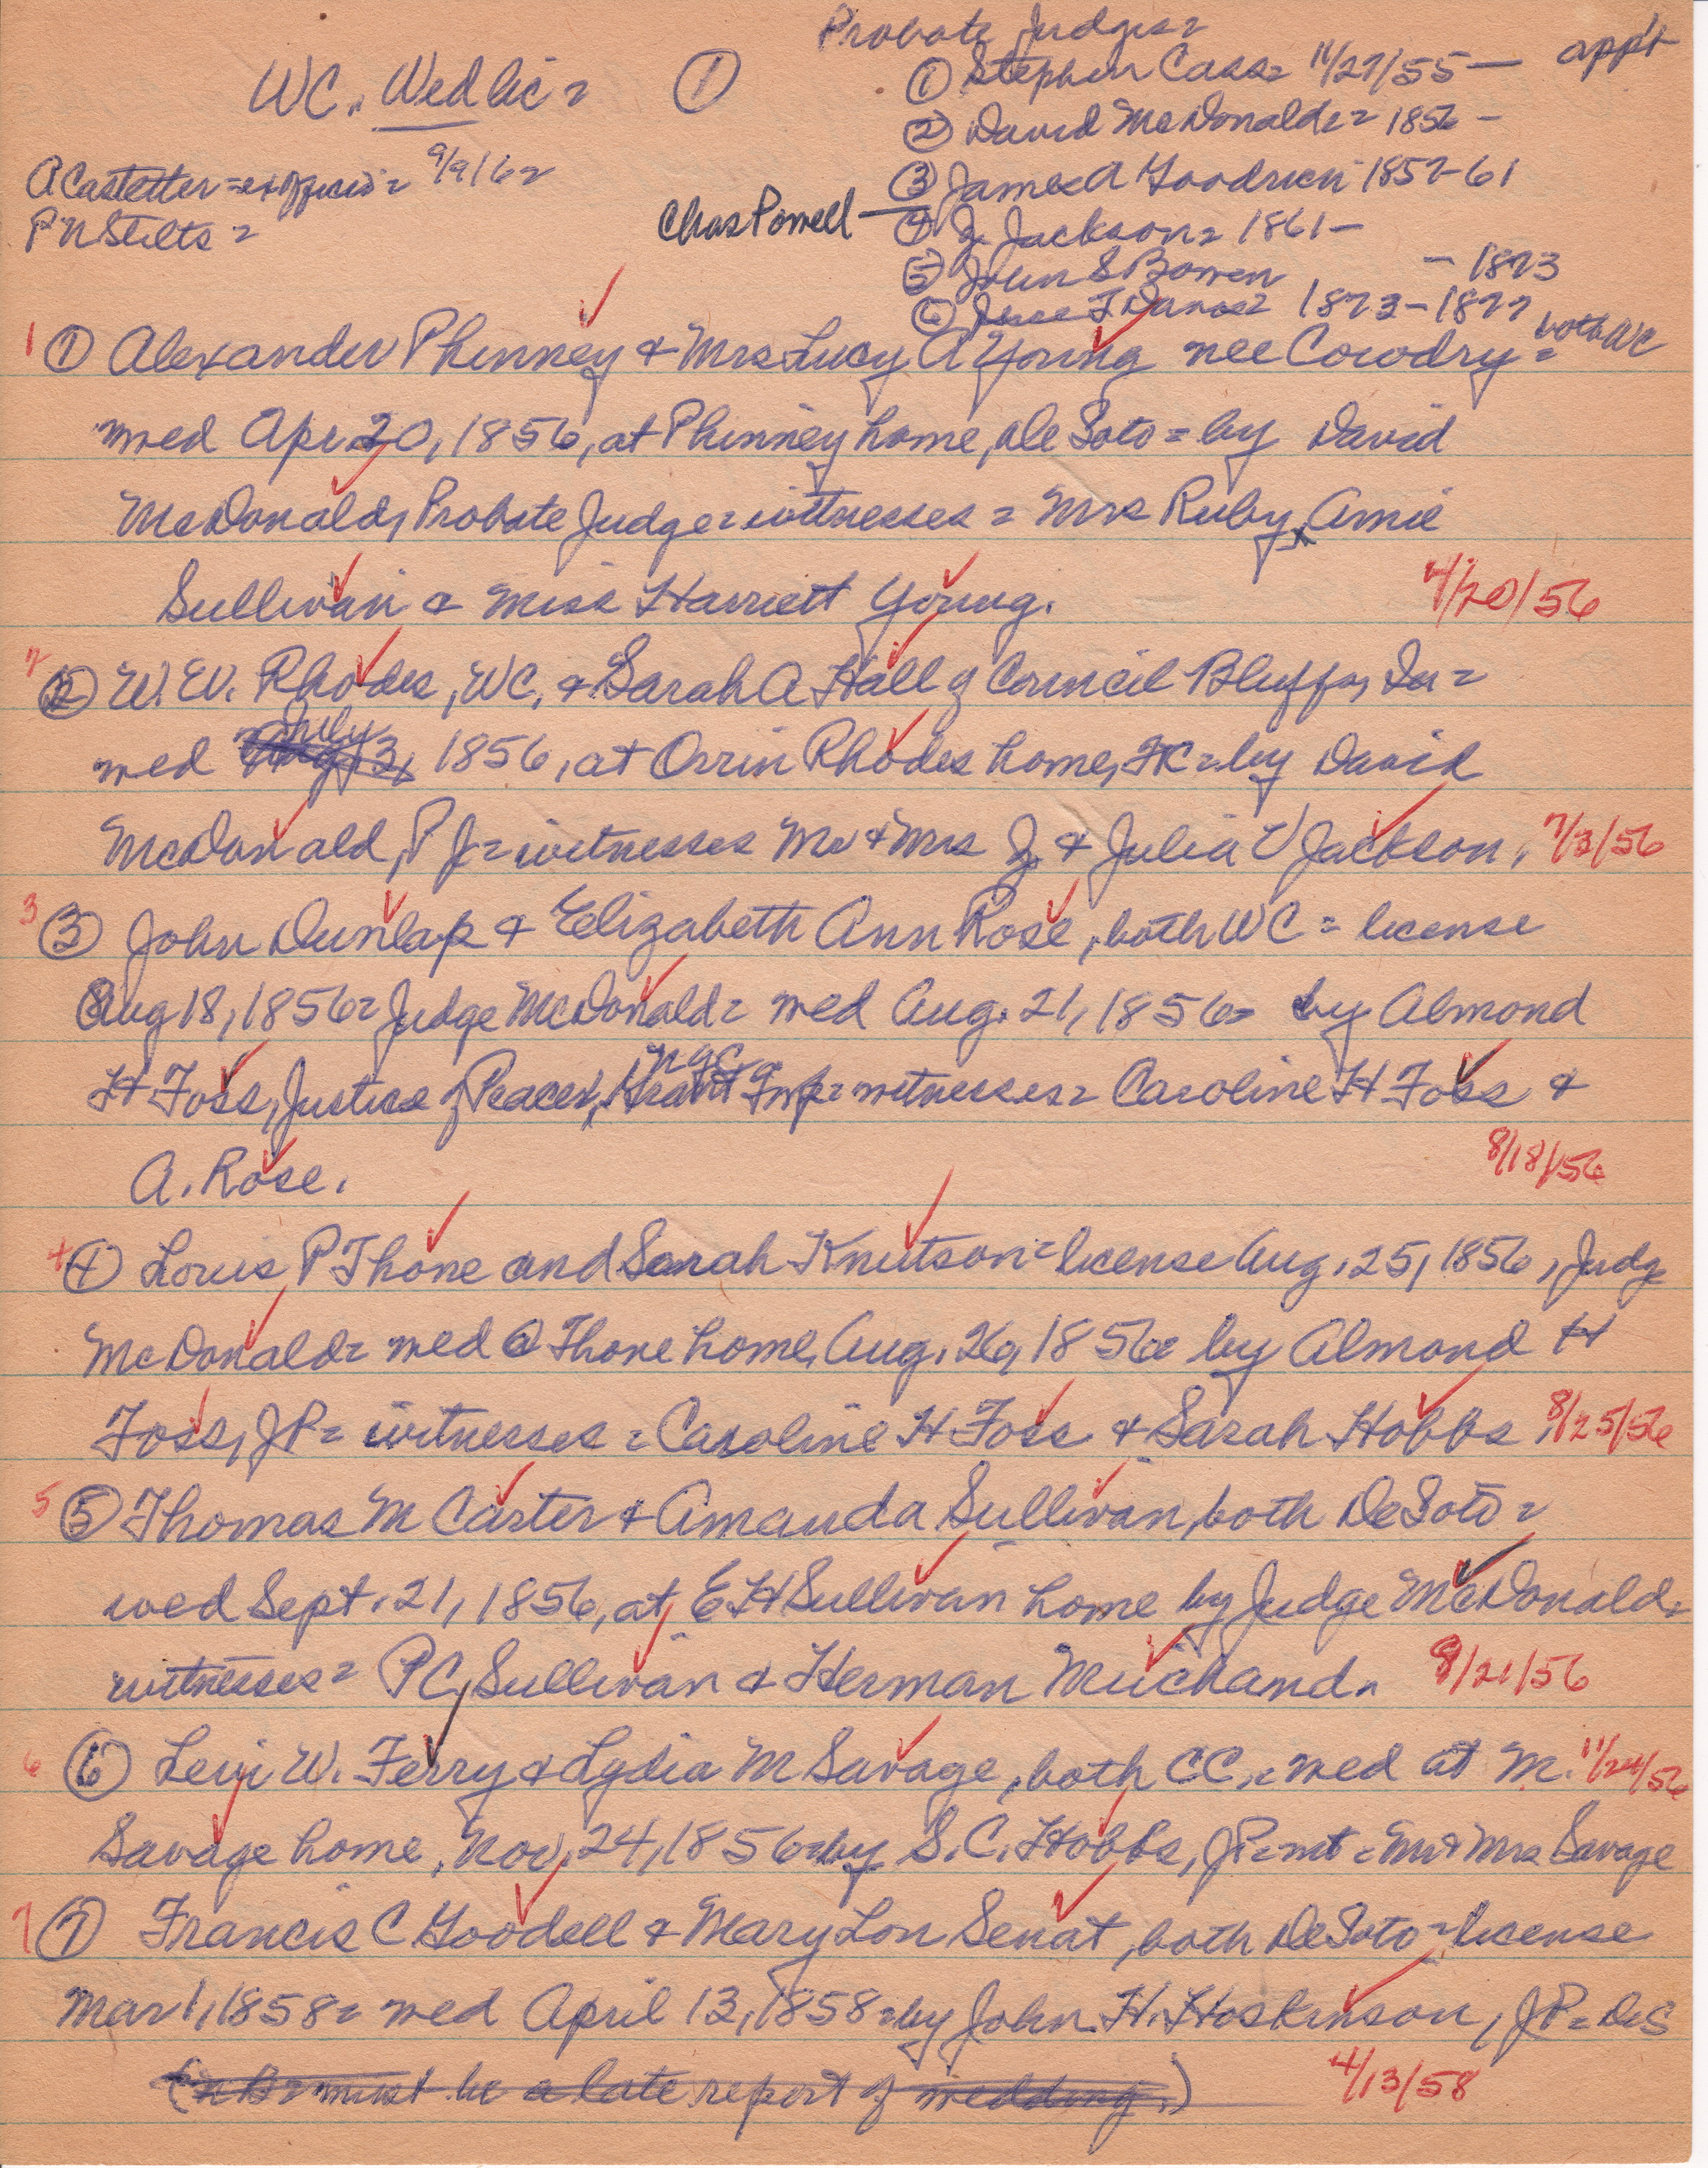 Probate Judges=
WC. Wed lic= ①
① Stephen Cass= 11/27/55 — app't
② David McDonald= 1856 —
A Castetter=ex officio= 9/9/62
③ James A Goodrich 1857-61
P N Stilts =
Chas Powell — ④ J. Jackson= 1861 —
⑤ John S Bowen — 1873
⑥ Jesse T Davis= 1873-1877
1 ① Alexander Phinney & Mrs Lucy A Young nee Cowdry= both WC
wed Apr 20, 1856, at Phinney home, De Soto = by David
McDonald, Probate Judge= witnesses = Mrs Ruby Amie
Sullivan & Miss Harriett Young. 4/20/56
2 ② W.W. Rhodes, WC, & Sarah A Hall of Council Bluffs, Ia =
wed July 3, 1856, at Orrin Rhodes home, FC= by David
McDonald, P J= witnesses Mr & Mrs J. & Julia V Jackson. 7/3/56
3 ③ John Dunlap & Elizabeth Ann Rose, both WC = license
Aug 18, 1856= Judge McDonald= wed Aug. 21, 1856= by Almond
H Foss, Justice of Peace, witnesses= Caroline H Foss &
A. Rose. 8/18/56
4 ④ Louis P Thone and Sarah Knutson=license Aug. 25, 1856, Judge
McDonald= wed @ Thone home, Aug. 26, 1856= by Almond H
Foss, JP= witnesses = Caroline H Foss & Sarah Hobbs. 8/25/56
5 ⑤ Thomas M Carter & Amanda Sullivan, both DeSoto =
wed Sept. 21, 1856, at E H Sullivan home by Judge McDonald=
witnesses= P C, Sullivan & Herman Muchand. 9/21/56
6 ⑥ Levi W. Ferry & Lydia M Savage, both CC, = wed at M. 11/24/56
Savage home, Nov. 24, 1856=by S. C. Hobbs, JP= wit = Mr & Mrs Savage
7 ⑦ Francis C Goodell & Mary Lon Senat, both DeSoto=license
Mar 1, 1858= wed April 13, 1858=by John H. Hoskinson, JP= DeS
(NB= must be a late report of wedding.) 4/13/58